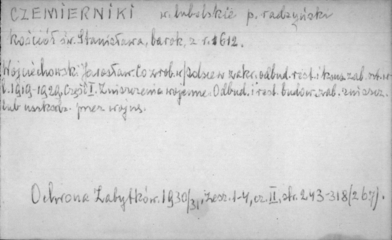 CZEMIERNIKI w. lubelskie p. radzyński
Kościół św. Stanisława, barok, z r. 1612.
Wojciechowski Jarosław. Co zrob. w Polsce w zakr. odbud. rest. i kons. zab. w
l. 1919-1929. Część I. Zniszczenia wojenne. Odbud. i rest. budow. zab. zniszcz.
lub uszkodz. przez wojnę.
Ochrona Zabytków. 1930/31, zesz. 1-4, cz. II, str. 243-318 (267).